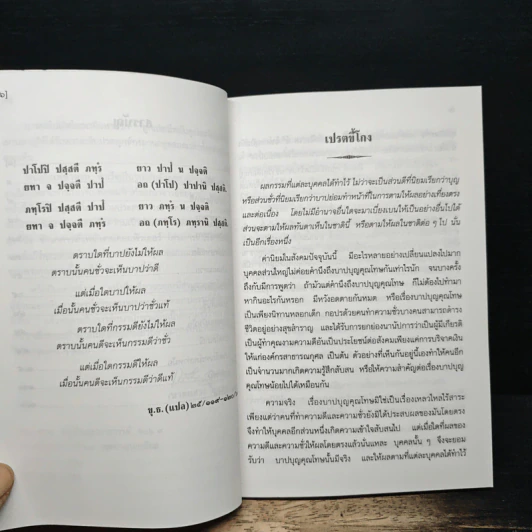 ๖]
ปาโปปิ ปสฺสตี ภทฺรํ ยาว ปาปํ น ปจฺจติ
ยทา จ ปจฺจตี ปาปํ อถ (ปาโป) ปาปานิ ปสฺสติ.
ภทฺโรปิ ปสฺสตี ปาปํ ยาว ภทฺรํ น ปจฺจติ
ยทา จ ปจฺจตี ภทฺรํ อถ (ภทฺโร) ภทฺรานิ ปสฺสติ.
ตราบใดที่บาปยังไม่ให้ผล
ตราบนั้นคนชั่วจะเห็นบาปว่าดี
แต่เมื่อใดบาปให้ผล
เมื่อนั้นคนชั่วจะเห็นบาปว่าชั่วแท้
ตราบใดที่กรรมดียังไม่ให้ผล
ตราบนั้นคนดีจะเห็นกรรมดีว่าชั่ว
แต่เมื่อใดกรรมดีให้ผล
เมื่อนั้นคนดีจะเห็นกรรมดีว่าดีแท้
ขุ.ธ. (แปล) ๒๕/๑๑๙-๑๒๐/
เปรตขี้โกง
ผลกรรมที่แต่ละบุคคลได้ทำไว้ ไม่ว่าจะเป็นส่วนดีที่นิยมเรียกว่าบุญ
หรือส่วนชั่วที่นิยมเรียกว่าบาปย่อมทำหน้าที่ในการตามให้ผลอย่างเที่ยงตรง
และต่อเนื่อง โดยไม่มีอำนาจอื่นใดจะมาเบี่ยงเบนให้เป็นอย่างอื่นไปได้
ส่วนจะตามให้ผลทันตาเห็นในชาตินี้ หรือตามให้ผลในชาติต่อ ๆ ไป นั้น
เป็นอีกเรื่องหนึ่ง
ค่านิยมในสังคมปัจจุบันนี้ มีอะไรหลายอย่างเปลี่ยนแปลงไปมาก
บุคคลส่วนใหญ่ไม่ค่อยคำนึงถึงบาปบุญคุณโทษกันเท่าไรนัก จนบางครั้ง
ถึงกับมีการพูดว่า ถ้ามัวแต่คำนึงถึงบาปบุญคุณโทษ ก็ไม่ต้องไปทำมา
หากินอะไรกันหรอก มีหวังอดตายกันหมด หรือเรื่องบาปบุญคุณโทษ
เป็นเพียงนิทานหลอกเด็ก กอปรด้วยคนทำความชั่วบางคนสามารถดำรง
ชีวิตอยู่อย่างสุขสำราญ และได้รับการยกย่องนานัปการว่าเป็นผู้มีเกียรติ
เป็นผู้ทำคุณงามความดีอันเป็นประโยชน์ต่อสังคมเพียงแค่การบริจาคเงิน
ให้แก่องค์กรสาธารณกุศล เป็นต้น ตัวอย่างที่เห็นกันอยู่นี้เองทำให้คนอีก
เป็นจำนวนมากเกิดความรู้สึกสับสน หรือให้ความสำคัญต่อเรื่องบาปบุญ
คุณโทษน้อยไปได้เหมือนกัน
ความจริง เรื่องบาปบุญคุณโทษมิใช่เป็นเรื่องเหลวไหลไร้สาระ
เพียงแต่ว่าคนที่ทำความดีและความชั่วยังมิได้ประสบผลของมันโดยตรง
จึงทำให้บุคคลอีกส่วนหนึ่งเกิดความเข้าใจสับสนไป แต่เมื่อใดที่ผลของ
ความดีและความชั่วให้ผลโดยตรงแล้วนั่นแหละ บุคคลนั้น ๆ จึงจะยอม
รับว่า บาปบุญคุณโทษนั้นมีจริง และให้ผลตามที่แต่ละบุคคลได้ทำไว้